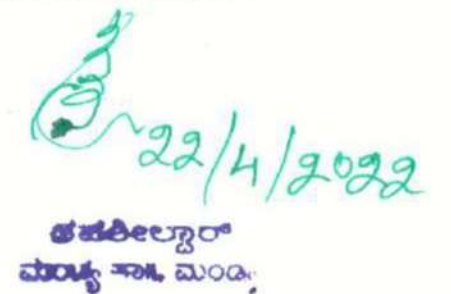 22/4/2022
ತಹಶೀಲ್ದಾರ್
ಮಂಡ್ಯ ತಾಃ, ಮಂಡ್ಯ